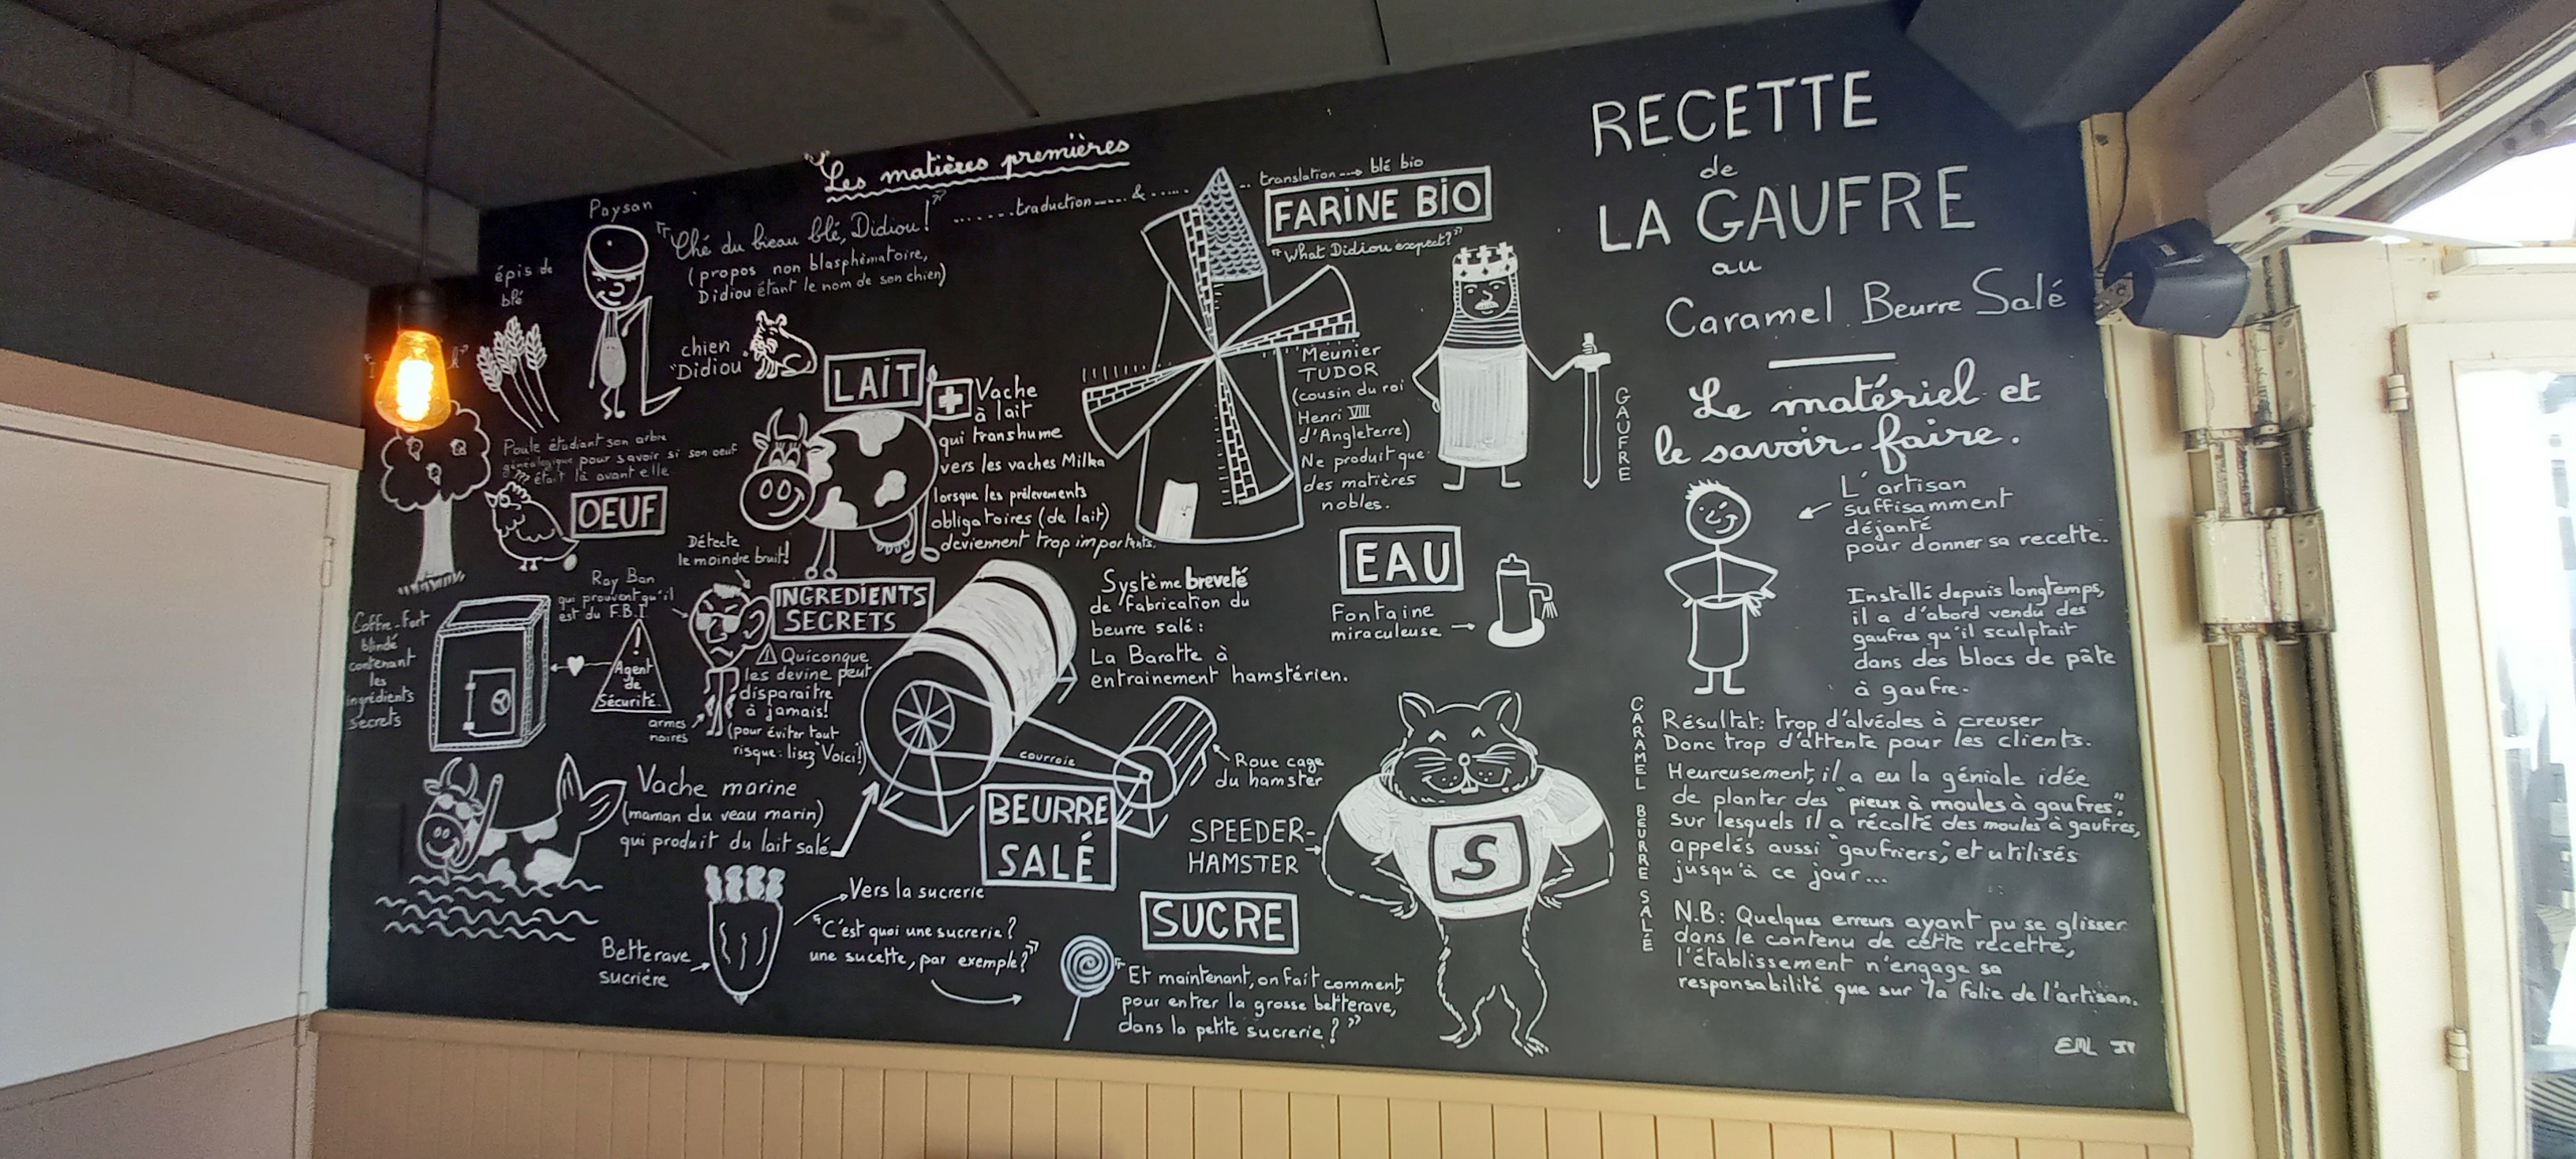 Les matières premières
Paysan
"Ché du bieau blé, Didiou!"
(propos non blasphématoire,
Didiou étant le nom de son chien)
.......traduction.....&.....
translation ---> blé bio
FARINE BIO
"What Didiou expect?"
épis de
blé
chien
"Didiou"
LAIT
Vache
à lait
qui transhume
vers les vaches Milka
lorsque les prélèvements
obligatoires (de lait)
deviennent trop importants.
Meunier
TUDOR
(cousin du roi
Henri VIII
d'Angleterre)
Ne produit que
des matières
nobles.
GAUFRE
Poule étudiant son arbre
généalogique pour savoir si son oeuf
était là avant elle.
OEUF
EAU
Fontaine
miraculeuse
Détecte
le moindre bruit!
Ray Ban
qui prouvent qu'il
est du F.B.I.
INGREDIENTS
SECRETS
Coffre-Fort
blindé
contenant
les
ingrédients
secrets
!
Agent
de
Sécurité.
armes
noires
! Quiconque
les devine peut
disparaitre
à jamais!
(pour éviter tout
risque: lisez "Voici!)
Système breveté
de fabrication du
beurre salé:
La Baratte à
entrainement hamstérien.
courroie
Roue cage
du hamster
BEURRE
SALÉ
Vache marine
(maman du veau marin)
qui produit du lait salé
SPEEDER-
HAMSTER
S
Betterave
sucrière
Vers la sucrerie
"C'est quoi une sucrerie?
une sucette, par exemple?"
SUCRE
"Et maintenant, on fait comment,
pour entrer la grosse betterave,
dans la petite sucrerie?"
RECETTE
de
LA GAUFRE
au
Caramel Beurre Salé
Le matériel et
le savoir-faire.
L'artisan
suffisamment
déjanté
pour donner sa recette.
Installé depuis longtemps,
il a d'abord vendu des
gaufres qu'il sculptait
dans des blocs de pâte
à gaufre.
CARAMEL BEURRE SALÉ
Résultat: trop d'alvéoles à creuser
Donc trop d'attente pour les clients.
Heureusement, il a eu la géniale idée
de planter des "pieux à moules à gaufres",
sur lesquels il a récolté des moules à gaufres,
appelés aussi "gaufriers," et utilisés
jusqu'à ce jour...
N.B: Quelques erreurs ayant pu se glisser
dans le contenu de cette recette,
l'établissement n'engage sa
responsabilité que sur la folie de l'artisan.